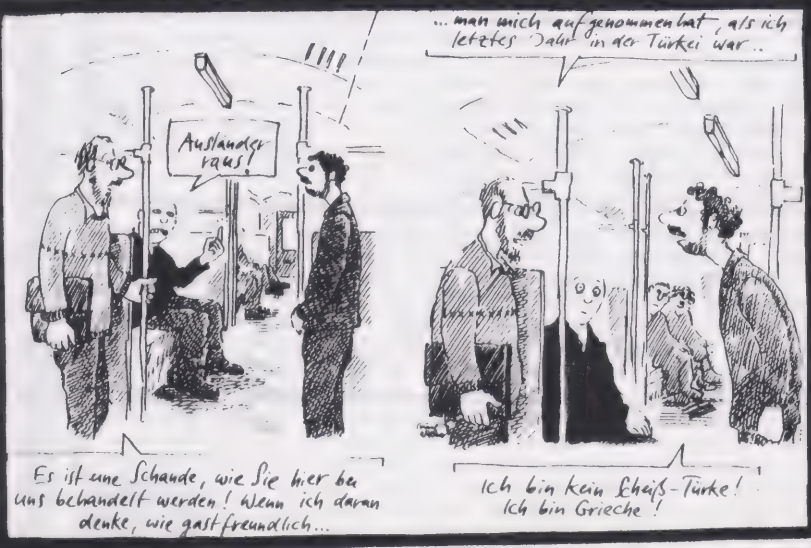 Ausländer
raus!
Es ist eine Schande, wie Sie hier bei
uns behandelt werden! Wenn ich daran
denke, wie gastfreundlich...
... man mich aufgenommen hat, als ich
letztes Jahr in der Türkei war..
Ich bin kein Scheiß-Türke!
Ich bin Grieche!